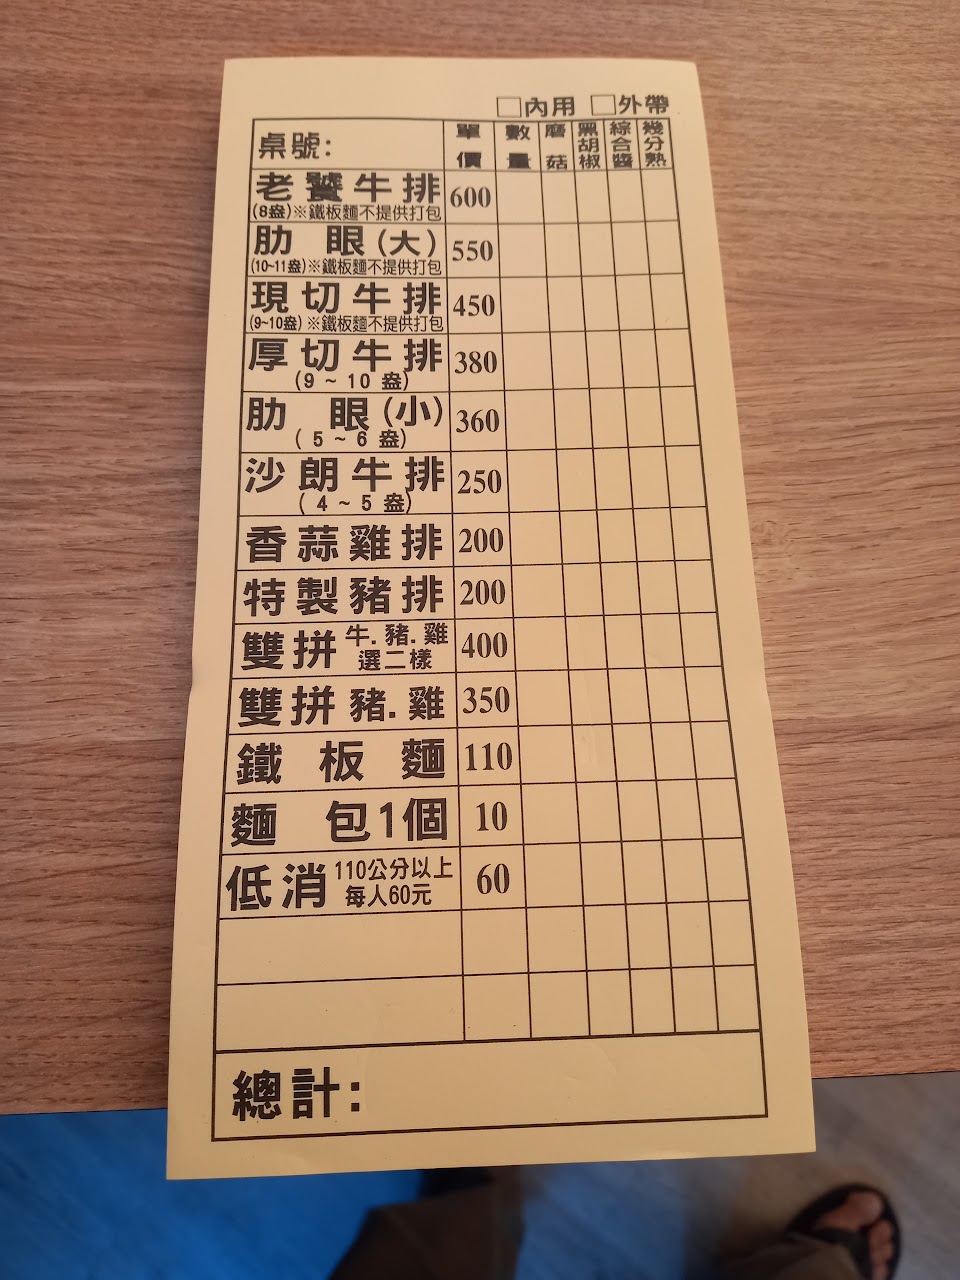 □內用 □外帶
桌號: 單價 數量 磨菇 黑胡椒 綜合醬 幾分熟
老饕牛排 600
(8盎)※鐵板麵不提供打包
肋眼(大) 550
(10~11盎)※鐵板麵不提供打包
現切牛排 450
(9~10盎)※鐵板麵不提供打包
厚切牛排 380
(9~10盎)
肋眼(小) 360
(5~6盎)
沙朗牛排 250
(4~5盎)
香蒜雞排 200
特製豬排 200
雙拼 牛.豬.雞 選二樣 400
雙拼 豬.雞 350
鐵板麵 110
麵包1個 10
低消 110公分以上 每人60元 60
總計: